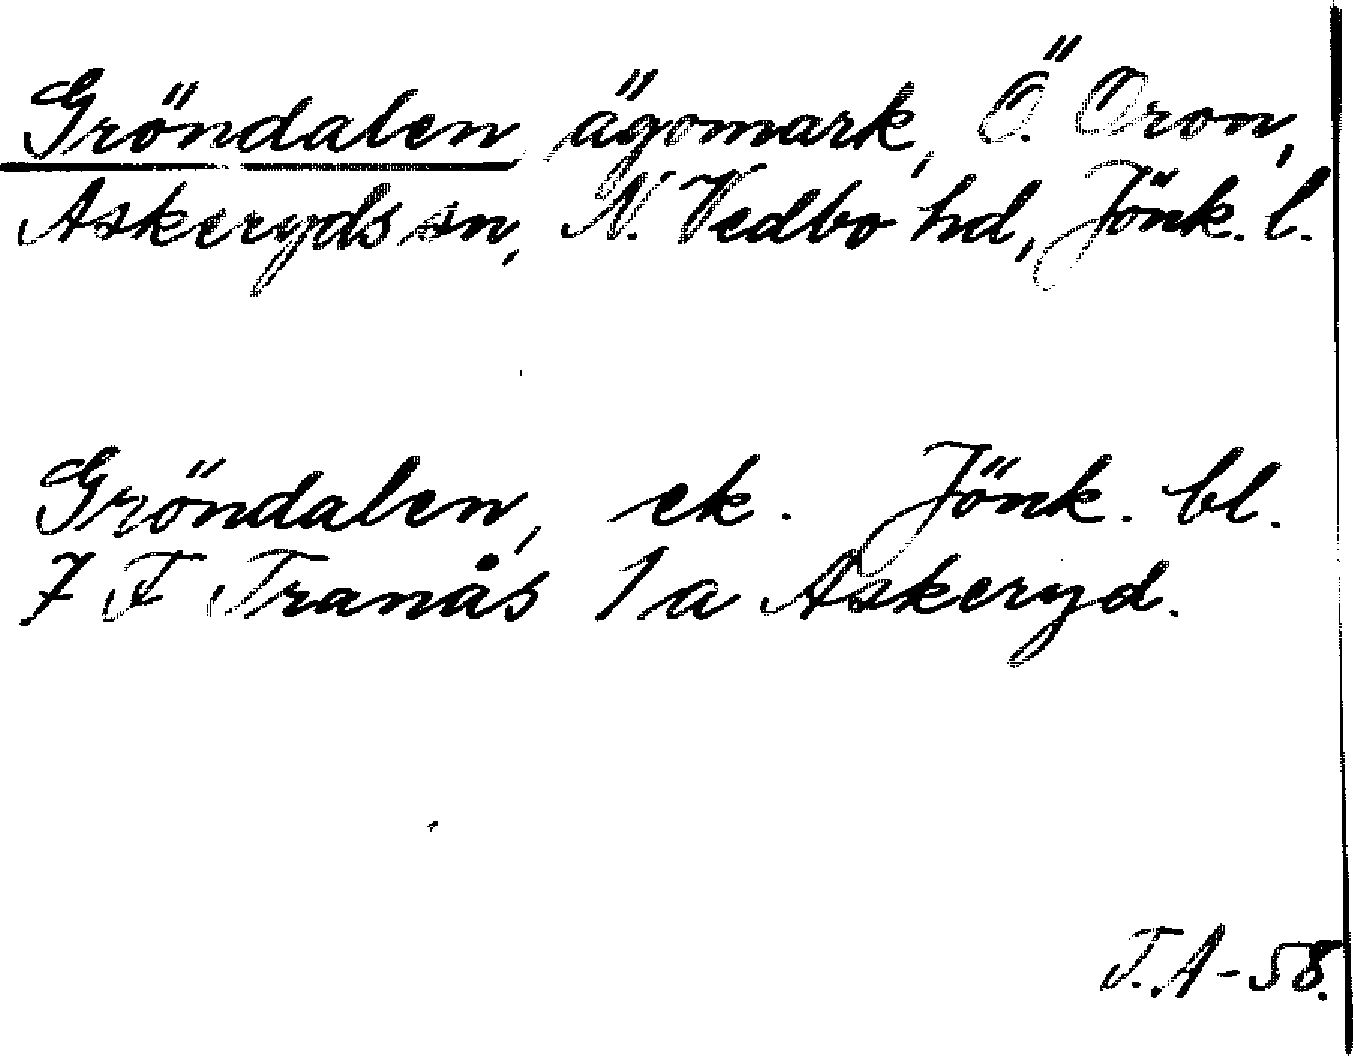 Gröndalen ägomark, Ö. Oron,
Askeryds sn, N. Vedbo hd, Jönk. l.
Gröndalen, ek. Jönk. bl.
7 F Tranås 1a Askeryd.
T.A-58.